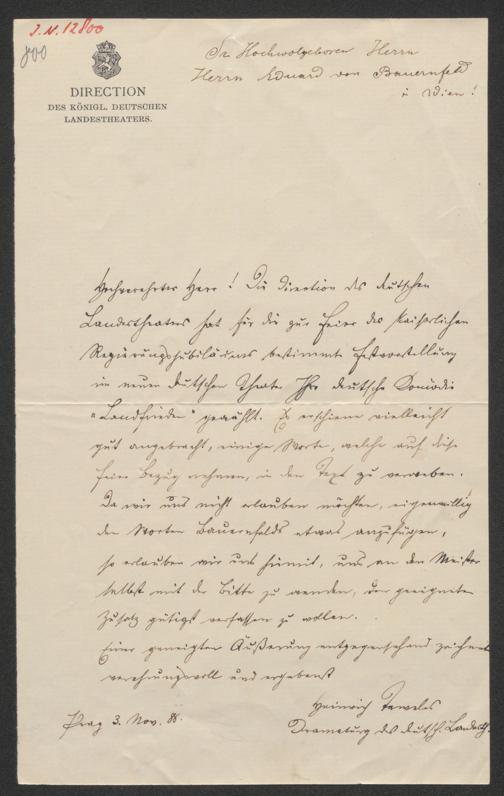 J.N. 12800
800
DIRECTION
DES KÖNIGL. DEUTSCHEN
LANDESTHEATERS.
Sr Hochwolgeboren Herrn
Herrn Eduard von Bauernfeld
in Wien!
Hochverehrter Herr! Die Direction des deutschen
Landestheaters hat für die zur Feier des Kaiserlichen
Regierungsjubiläums bestimmte Festvorstellung
im neuen deutschen Theater Ihre deutsche Komödie
"Landfrieden" gewählt. Es erschiene vielleicht
gut angebracht, einige Worte, welche auf diese
Feier Bezug nehmen, in den Text zu verweben.
Da wir uns nicht erlauben möchten, eigenwillig
den Worten Bauernfelds etwas anzufügen,
so erlauben wir uns hiemit, uns an den Meister
selbst mit der Bitte zu wenden, den geeigneten
Zusatz gütigst verfassen zu wollen.
Einer geneigten Äußerung entgegensehend zeichnet
verehrungsvoll und ergebenst
Heinrich Teweles
Prag 3. Nov. 88.
Dramaturg des deutsch. Landesth.